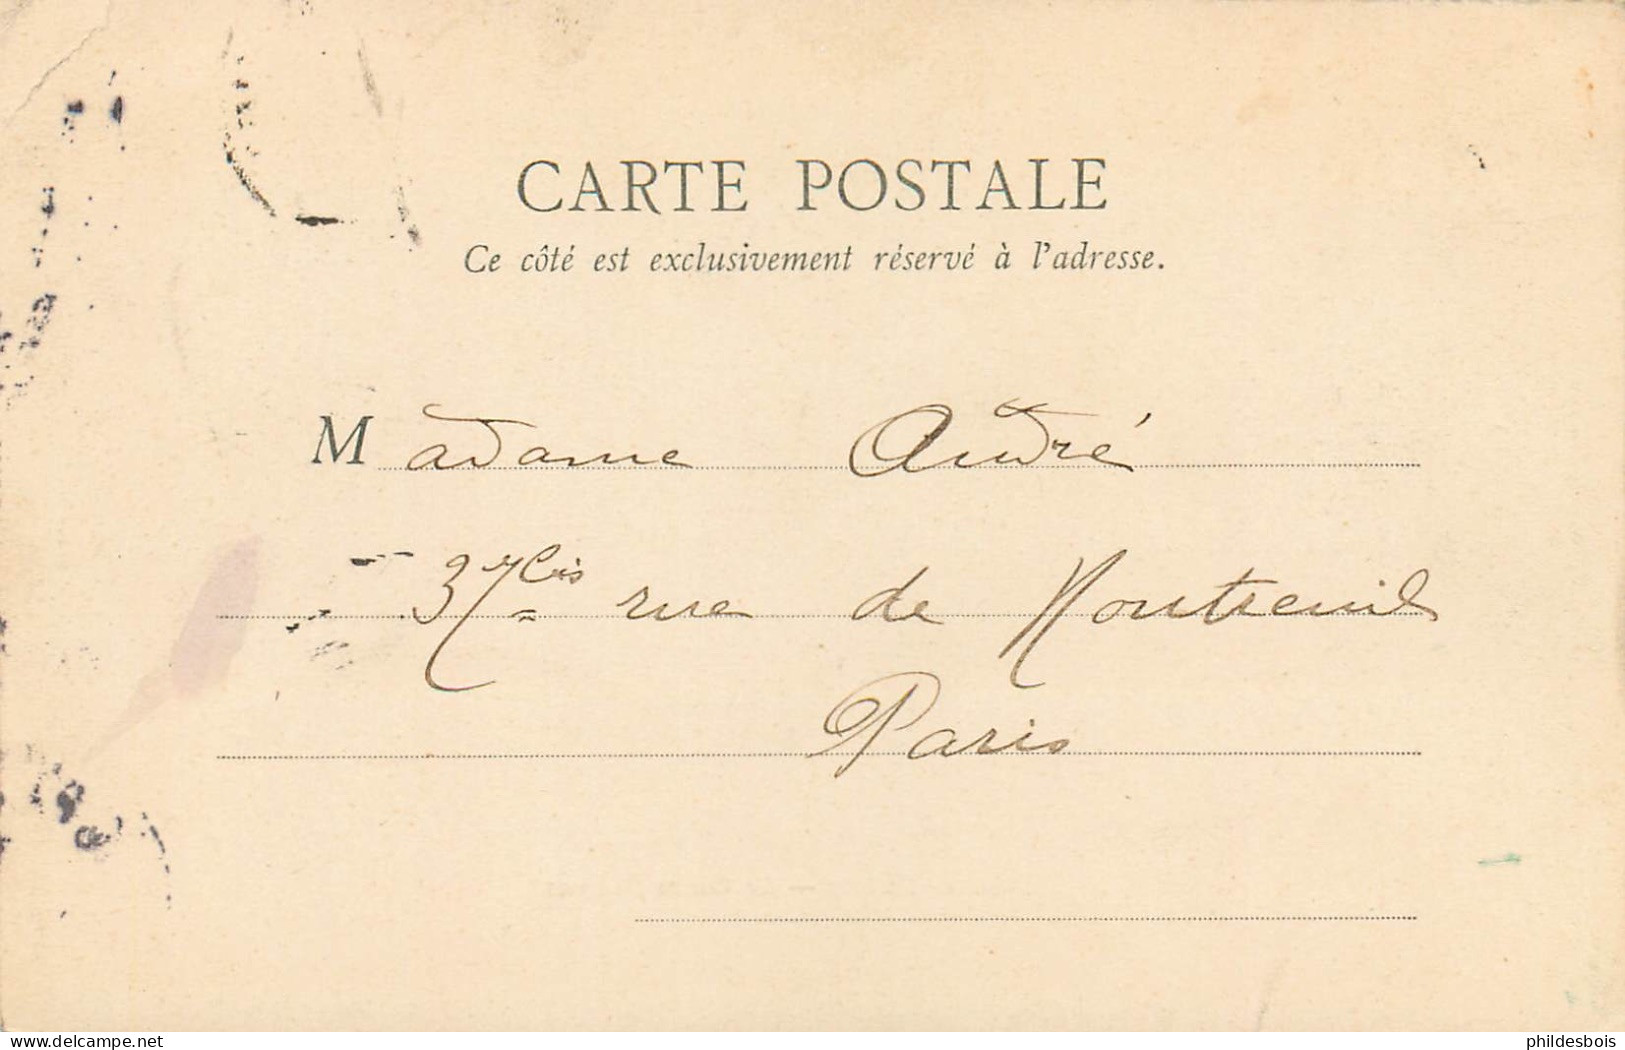 CARTE POSTALE
Ce côté est exclusivement réservé à l'adresse.
Madame André
37 bis rue de Montreuil
Paris
delcampe.net
phildesbois